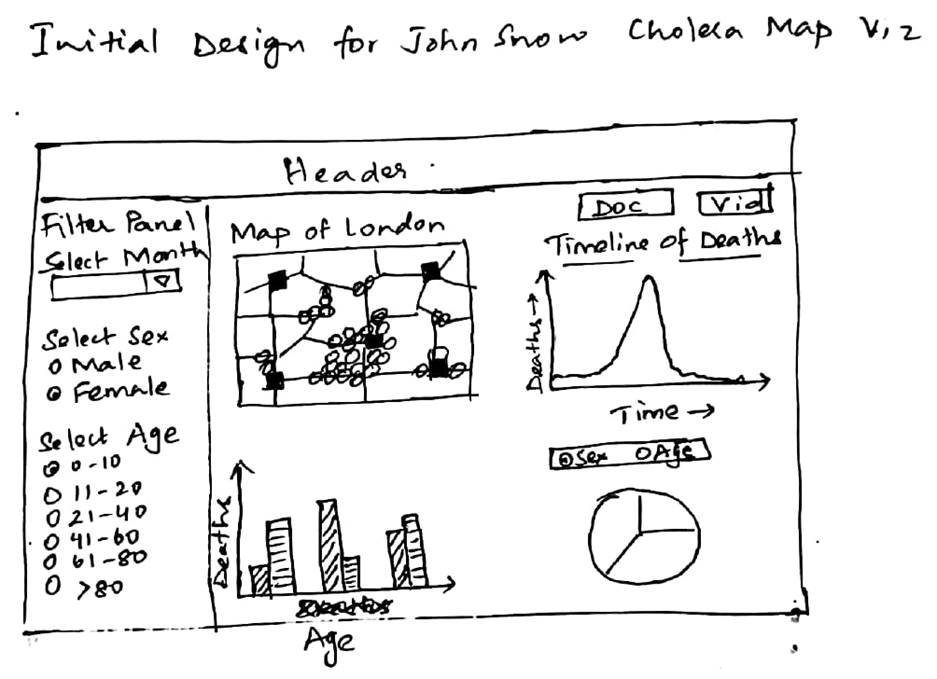 Initial Design for John Snow Cholera Map V.2
Header
Filter Panel
Select Month
Select Sex
Male
Female
Select Age
0-10
11-20
21-40
41-60
61-80
>80
Map of London
Deaths
Age
Doc
Vid
Timeline of Deaths
Deaths→
Time→
Sex Age